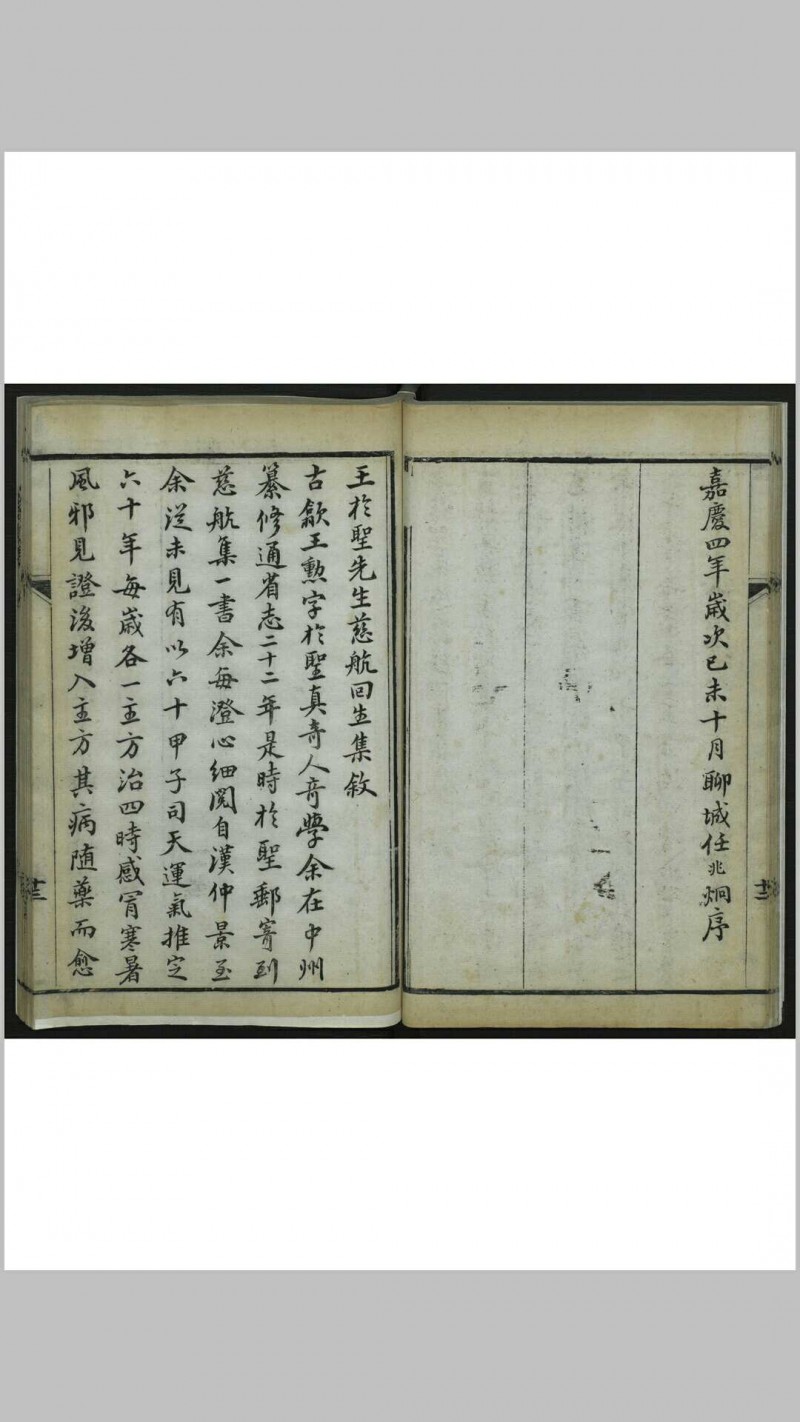 嘉慶四年歲次己未十月聊城任兆炯序
十二
王於聖先生慈航回生集敘
古歙王勲字於聖真奇人奇學余在中州
纂修通省志二十二年是時於聖郵寄到
慈航集一書余每澄心細閱自漢仲景至
余從未見有以六十甲子司天運氣推定
六十年每歲各一主方治四時感冒寒暑
風邪見證後增入主方其病随藥而愈
十三